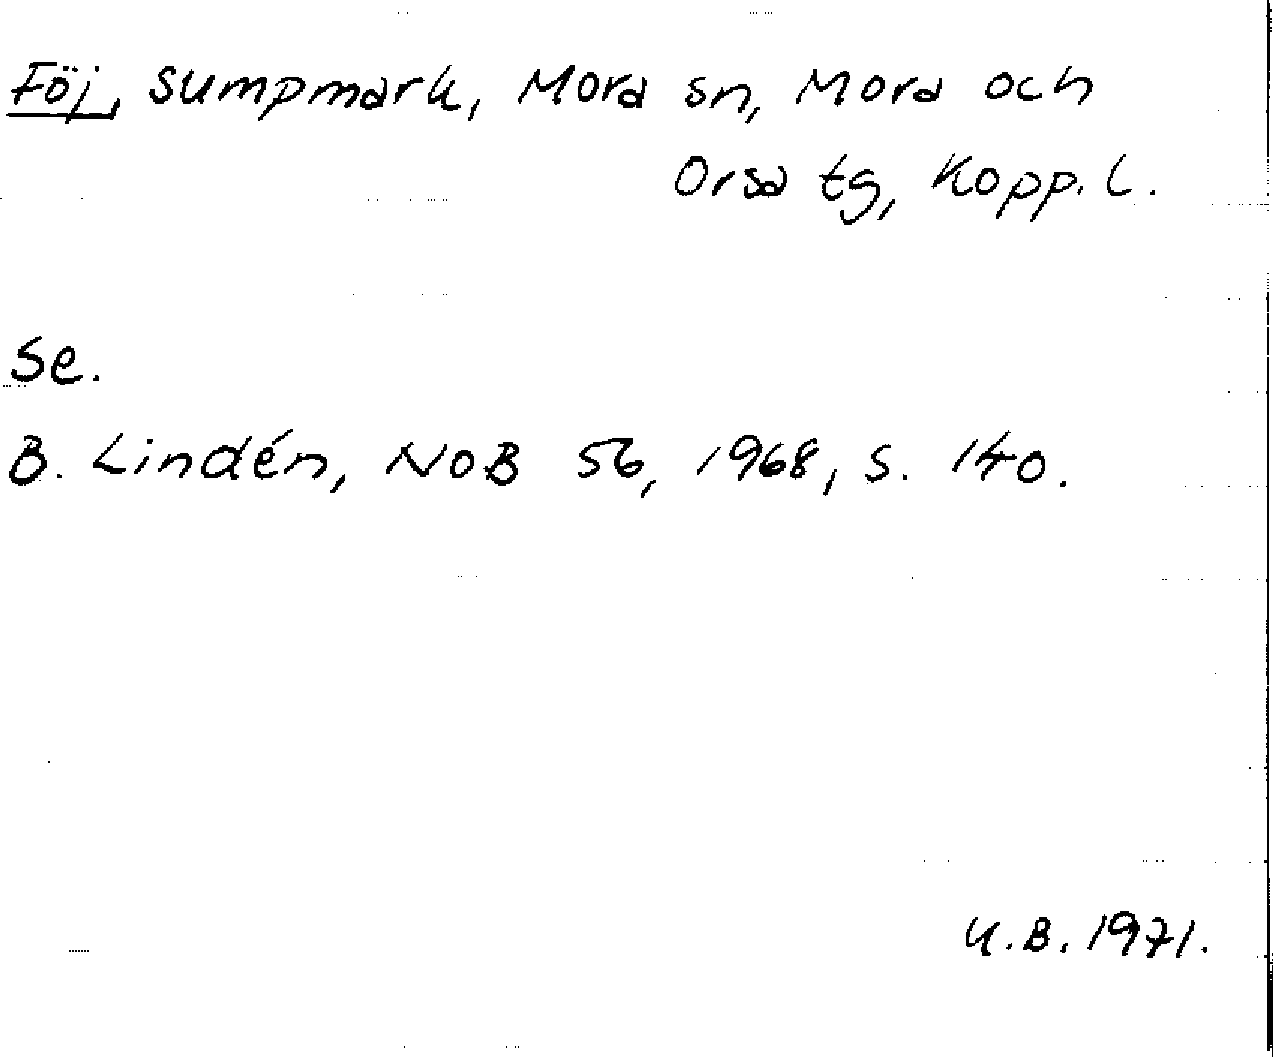 Föj, sumpmark, Mora sn, Mora och
Orsa tg, Kopp. l.
Se.
B. Lindén, NoB 56, 1968, s. 140.
K.B. 1971.